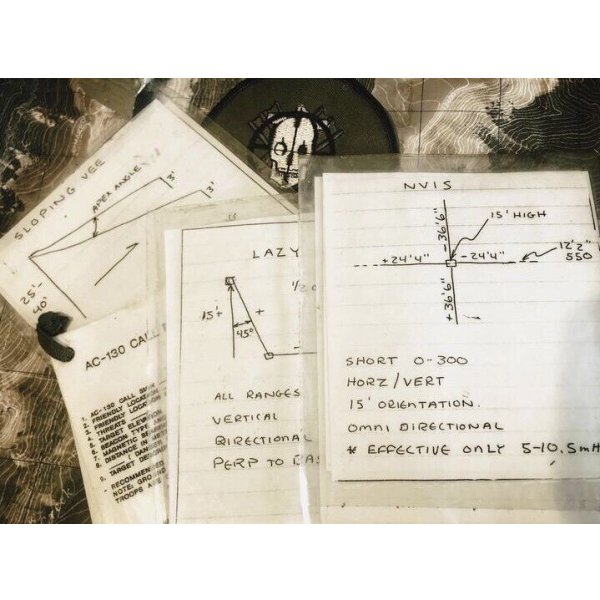 SLOPING VEE
APEX ANGLE
3'
3'
25'-
40'
AC-130 CALL
1. AC-130 CALL
2. FRIENDLY LOCATION
3. FRIENDLY LOCAT
4. THREATS
5. TARGET ELEVATION
6. BEACON TYPE
7. MAGNETIC
8. DISTANCE
9. TARGET
- RECOMMENDED
NOTE: GROUND
TROOPS ARE
LAZY
1/2
15'
+
+
45°
ALL RANGES
VERTICAL
BIRECTIONAL
PERP TO BAS
NVIS
-36'6"
15' HIGH
+24'4"
-24'4"
12'2"
550
+36'6"
SHORT 0-300
HORZ/VERT
15' ORIENTATION.
OMNI DIRECTIONAL
* EFFECTIVE ONLY 5-10.5mH